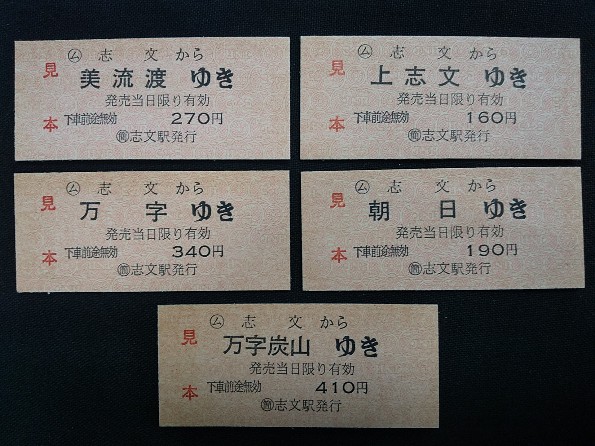 ㋰ 志文から
見本
美流渡 ゆき
発売当日限り有効
下車前途無効 270円
志文駅発行
㋰ 志文から
見本
上志文 ゆき
発売当日限り有効
下車前途無効 160円
志文駅発行
㋰ 志文から
見本
万字 ゆき
発売当日限り有効
下車前途無効 340円
志文駅発行
㋰ 志文から
見本
朝日 ゆき
発売当日限り有効
下車前途無効 190円
志文駅発行
㋰ 志文から
見本
万字炭山 ゆき
発売当日限り有効
下車前途無効 410円
志文駅発行